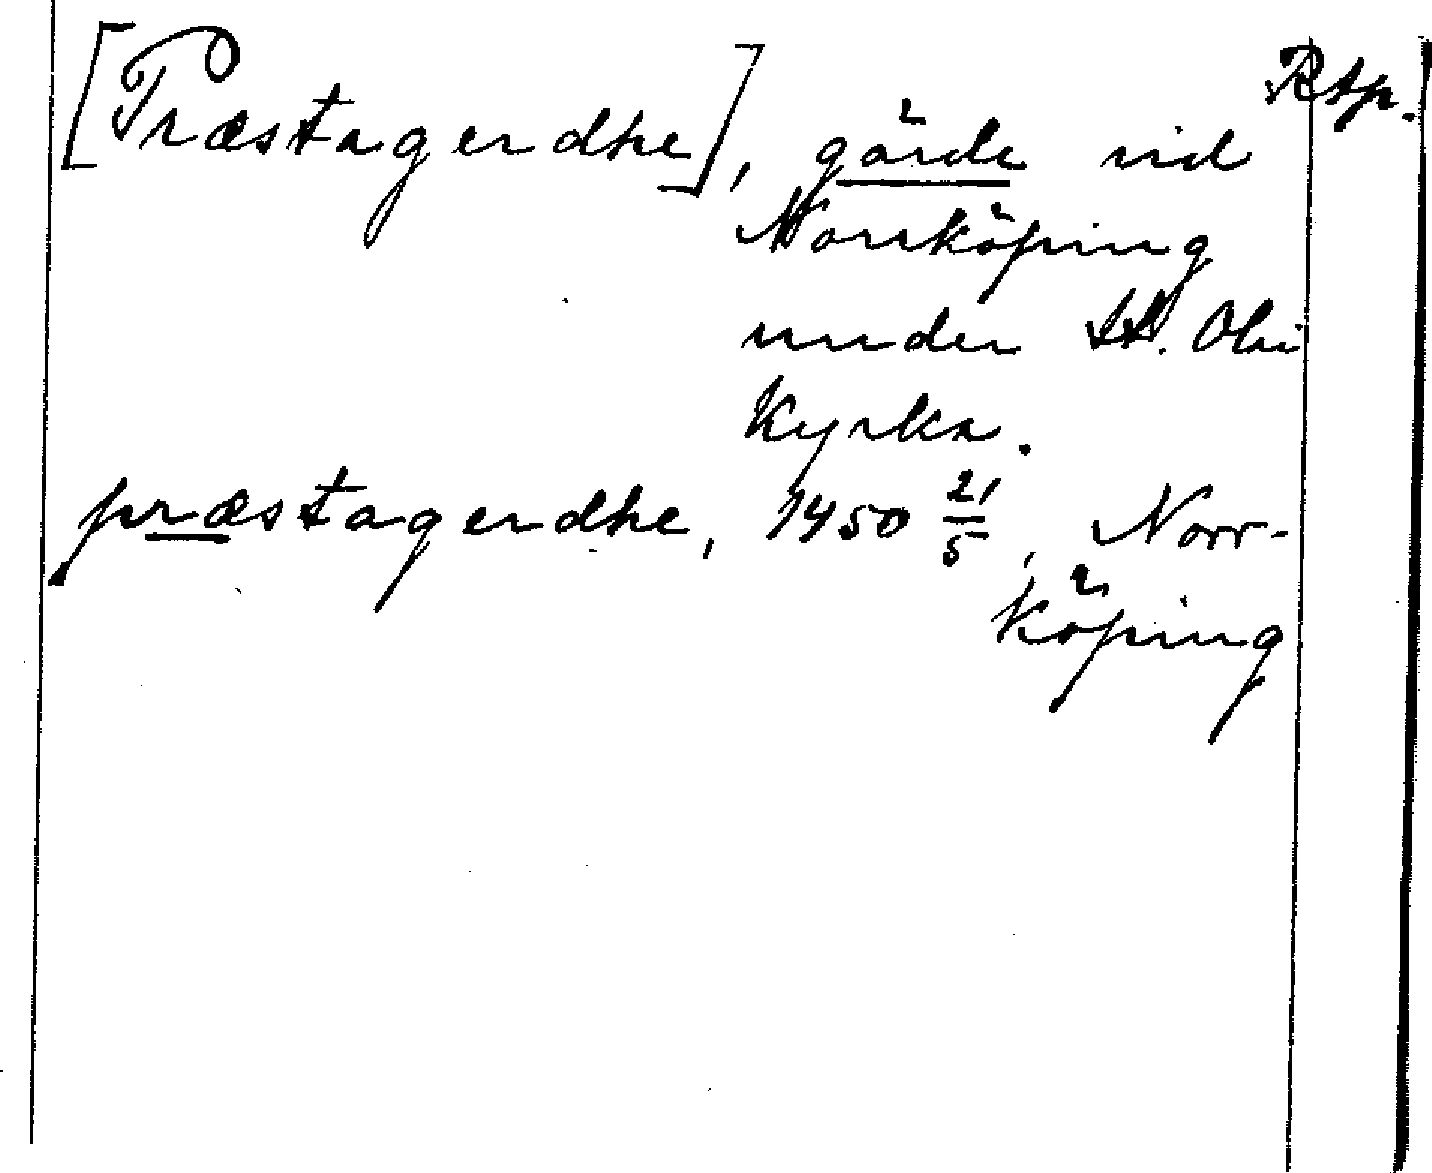 [Præstagerdhe], gärde vid Rtp.
Norrköping
under St. Olai
Kyrka.
præstagerdhe, 1450 21/5, Norr-
köping